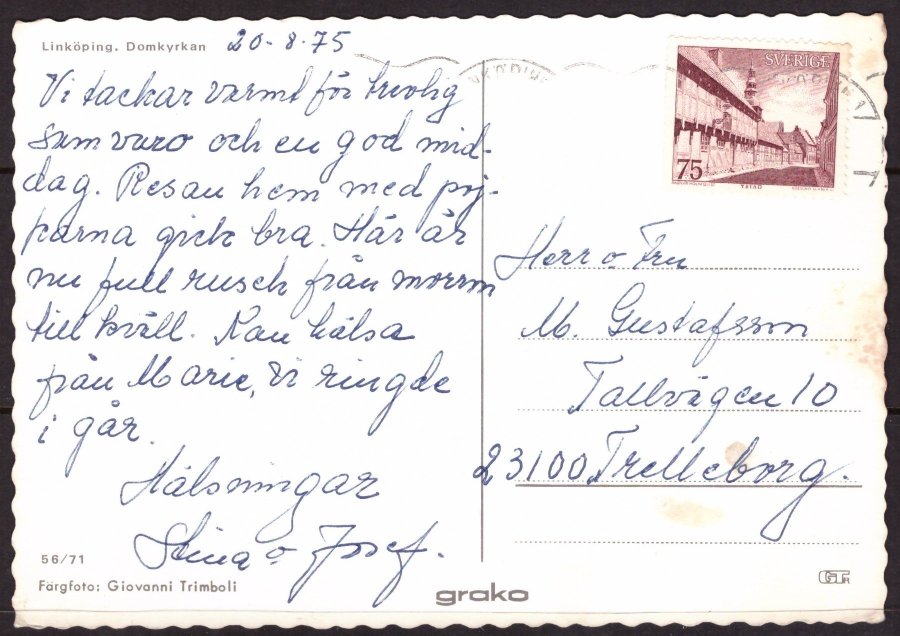 Linköping. Domkyrkan 20-8-75
Vi tackar varmt för trevlig
samvaro och en god mid-
dag. Resan hem med poj-
karna gick bra. Här är
nu full rusch från morron
till kväll. Kan hälsa
från Marie, Vi ringde
i går.
Hälsningar
Stina o Josef.
56/71
Färgfoto: Giovanni Trimboli
grako
SVERIGE
75
YSTAD
Herr o Fru
M. Gustafsson
Tallvägen 10
23100 Trelleborg.